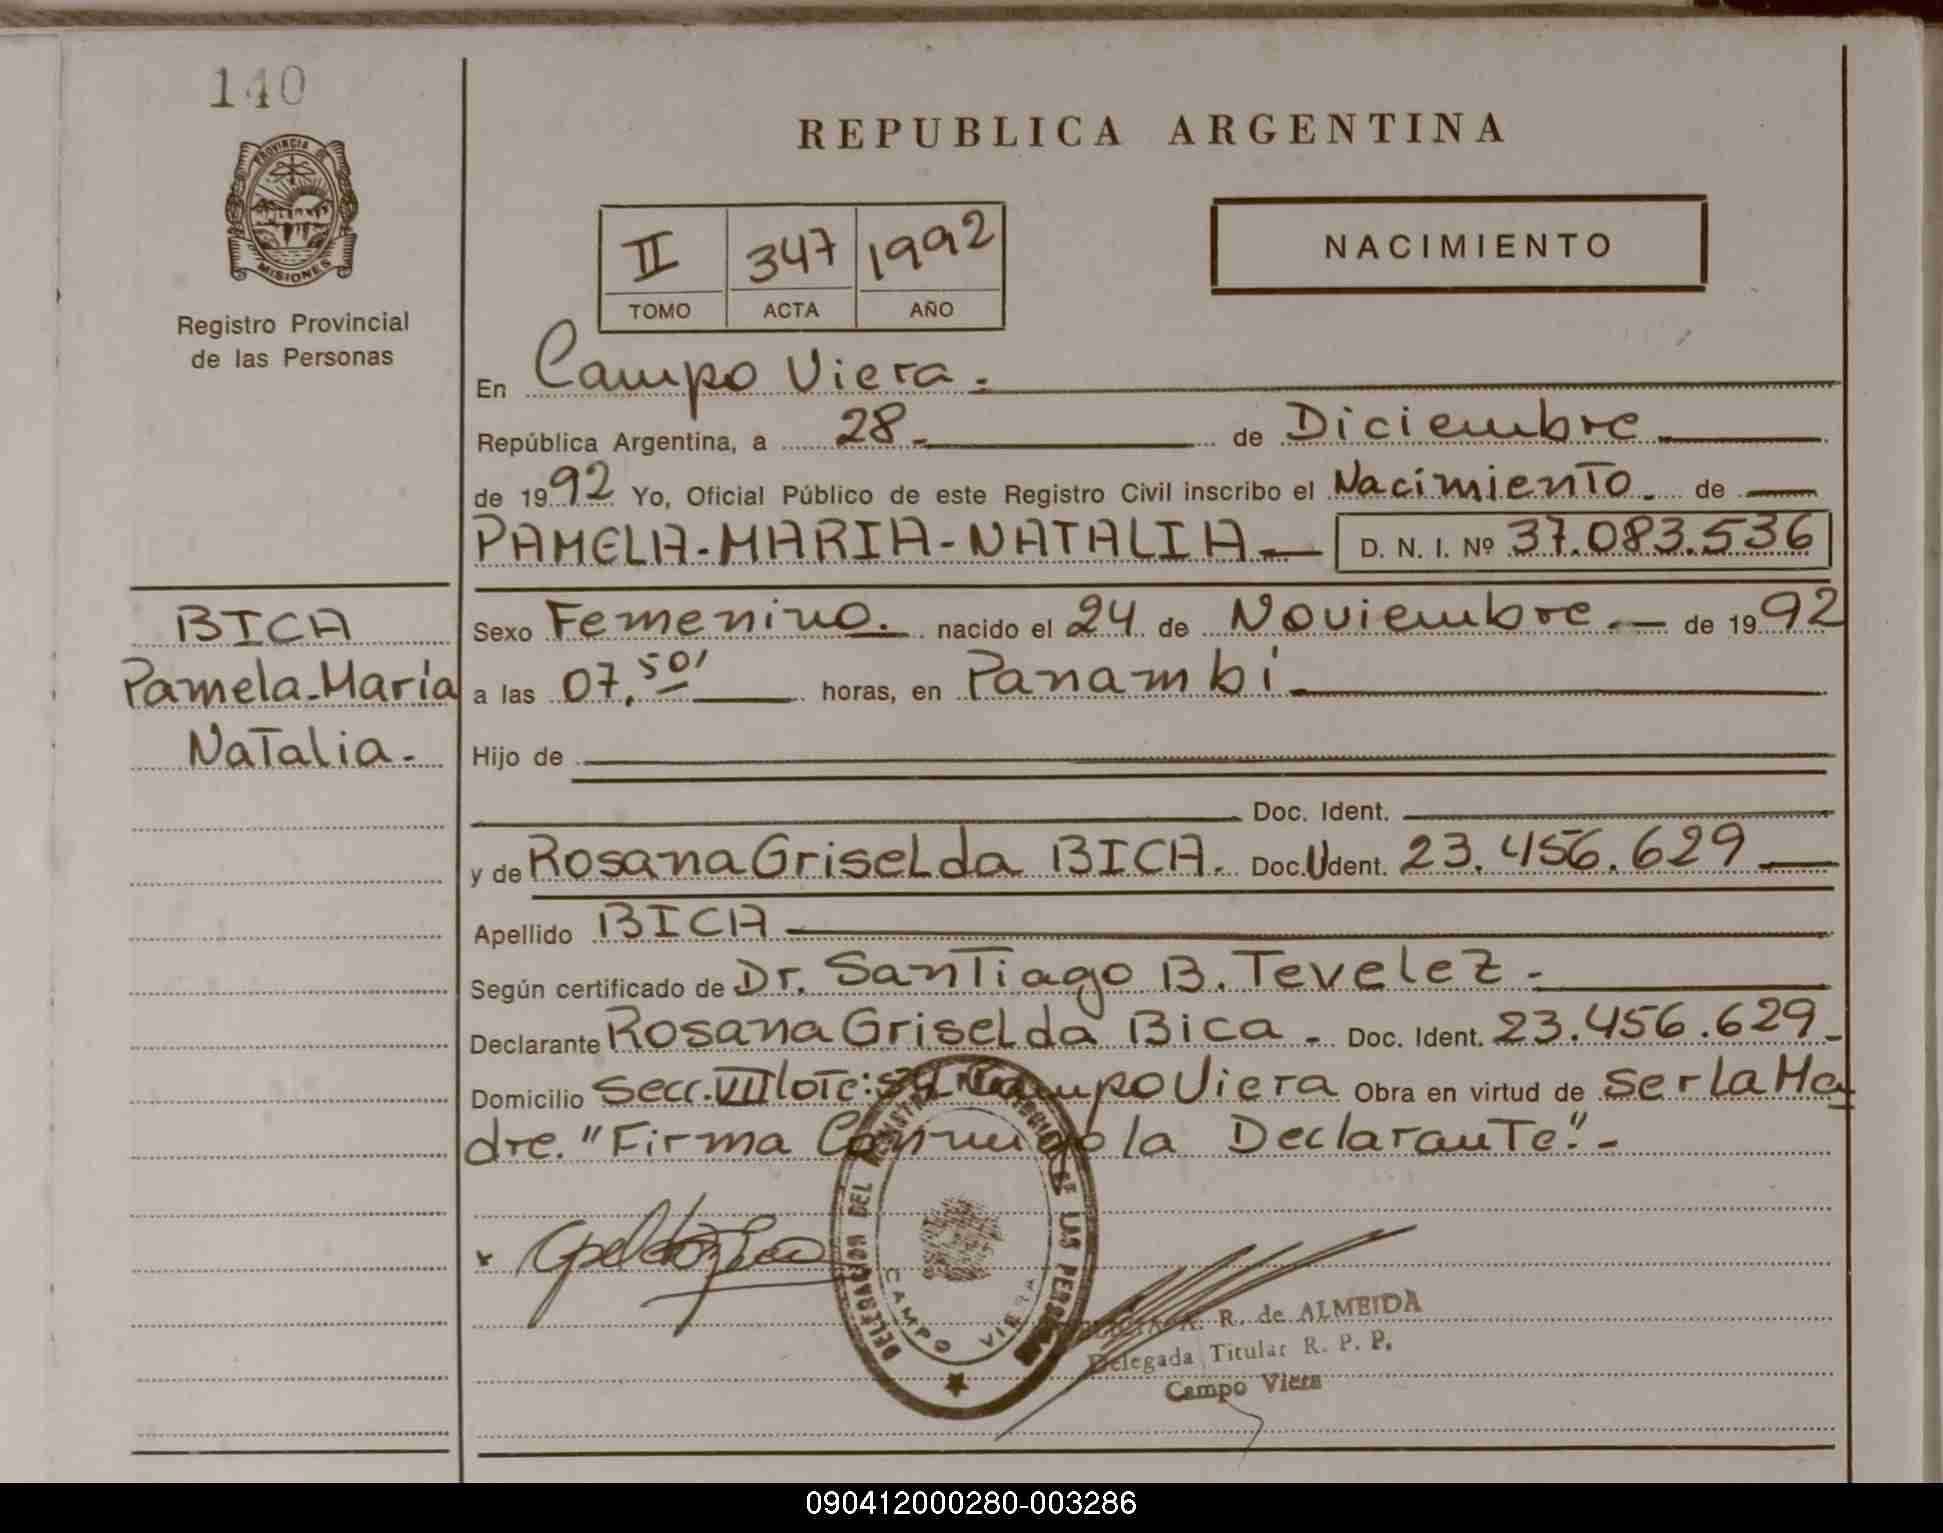 140
PROVINCIA DE
MISIONES
Registro Provincial
de las Personas
REPUBLICA ARGENTINA
II 347 1992
TOMO ACTA AÑO
NACIMIENTO
En Campo Viera.
República Argentina, a 28 de Diciembre
de 1992 Yo, Oficial Público de este Registro Civil inscribo el Nacimiento. de
PAMELA-MARIA-NATALIA D. N. I. Nº 37.083.536
BICA
Pamela-María
Natalia.
Sexo Femenino. nacido el 24 de Noviembre de 1992
a las 07,50' horas, en Panambí
Hijo de
Doc. Ident.
y de Rosana Griselda BICA. Doc. Udent. 23.456.629
Apellido BICA
Según certificado de Dr. Santiago B. Tevelez
Declarante Rosana Griselda Bica Doc. Ident. 23.456.629
Domicilio Secc. VIII lote: Campo Viera Obra en virtud de ser la Ma
dre. "Firma Conmigo la Declarante".
DELEGACION DEL DE LAS PERSONAS
CAMPO VIERA
R. de ALMEIDA
Delegada Titular R. P. P.
Campo Viera
090412000280-003286